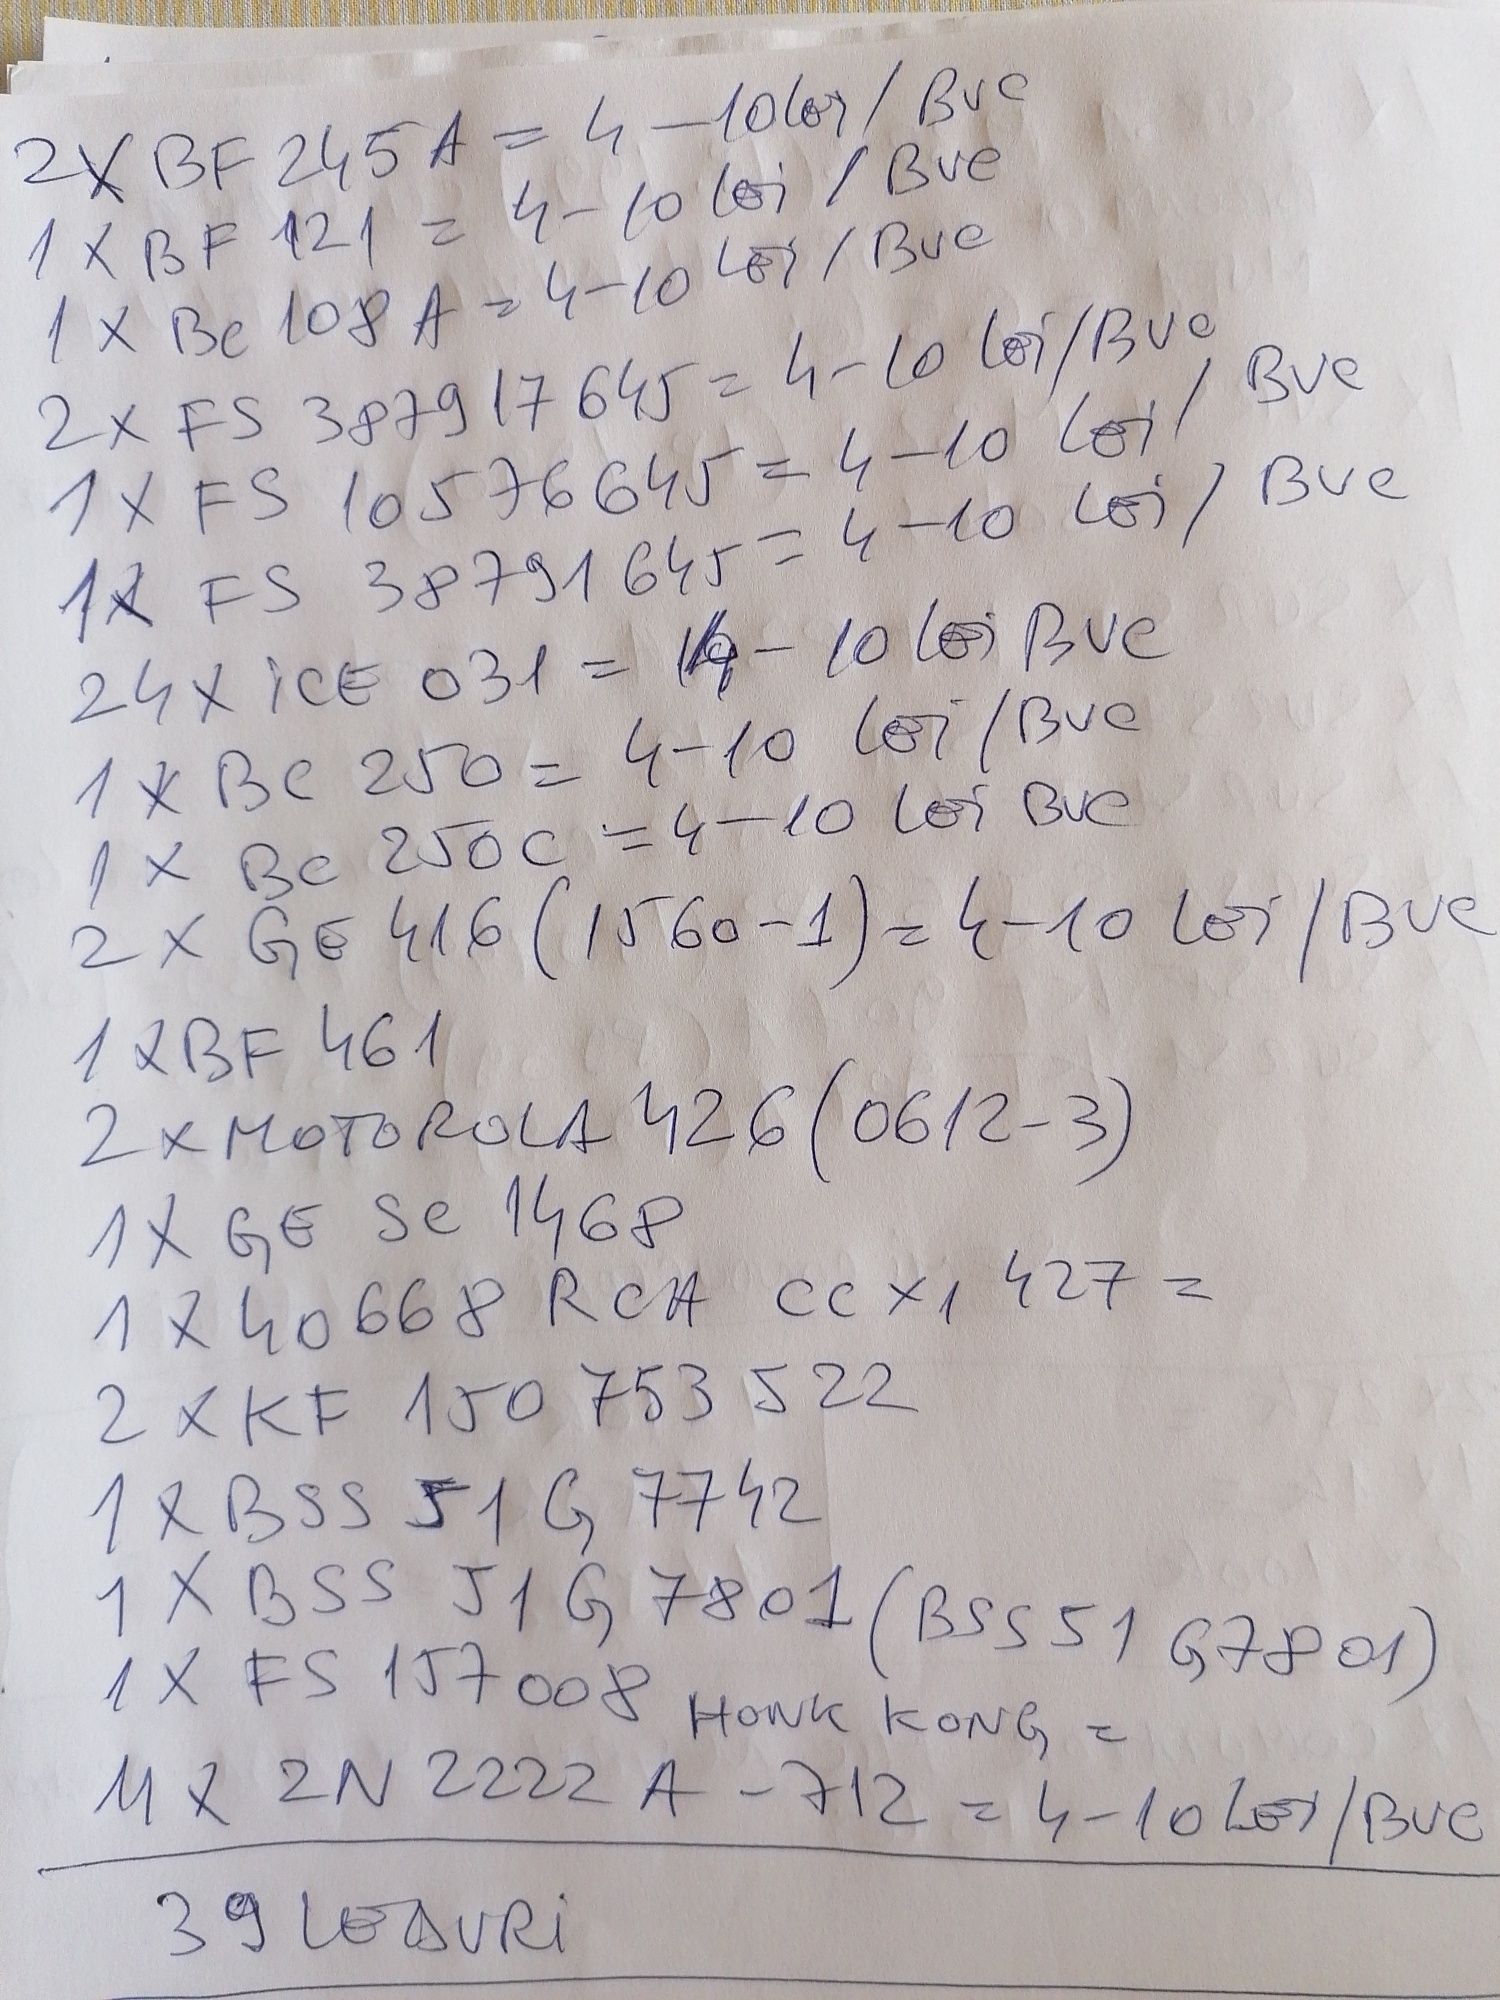 2X BF 245A = 4-10 lei/Buc
1 X BF 121 = 4-10 lei / Buc
1 X Bc 108 A = 4-10 lei / Buc
2 X FS 387917645 = 4-10 lei/Buc
1 X FS 10576645 = 4-10 lei / Buc
1X FS 38791645 = 4-10 lei / Buc
24 X iCE 031 = - 10 lei Buc
1 X Bc 250 = 4-10 lei / Buc
1 X Bc 250c = 4-10 lei Buc
2 X GE 416 (1560-1) = 4-10 lei / Buc
1 X BF 461
2 X MOTOROLA 426 (0612-3)
1 X GE Sc 1468
1 X 40668 RCA CC X1 427 =
2 X KF 150 753 522
1 X BSS 51 G 7742
1 X BSS 51 G 7801 (BSS51 G7801)
1 X FS 157008 HONK KONG =
4 X 2N 2222 A - 712 = 4-10 Lei/Buc
39 LEDURI